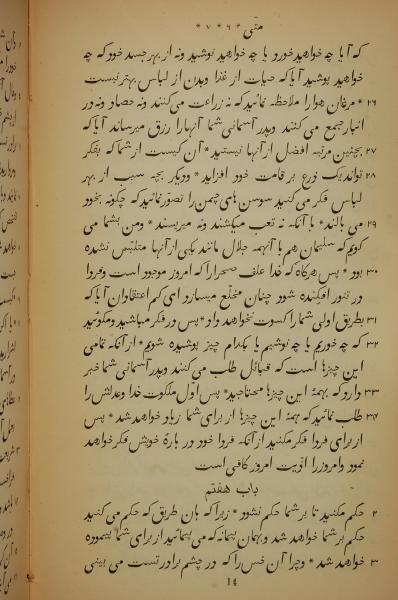 متّی * ۶ * ۷ *
که آیا چه خواهید خورد یا چه خواهید نوشید ونه از بهر جسد خود که چه
خواهید پوشید آیا که حیات از غذا وبدن از لباس بهتر نیست
۲۶ * مرغان هوا را ملاحظه نمائید که نه زراعت می کنند ونه حصاد ونه در
انبار جمع می کنند وپدر آسمانی شما آنها را رزق میرساند آیا که
۲۷ بچنین مرتبه افضل از آنها نیستید * آن کیست از شما که بفکر
۲۸ تواند یک ذرع بر قامت خود افزاید * ودیگر بچه سبب از بهر
لباس فکر می کنید سوسن های چمن را تصوّر نمائید که چگونه بخود
۲۹ می بالند * با آنکه نه تعب میکشند ونه میریسند * ومن بشما می
کویم که سلیمان هم با آنهمه جلال مانند یکی از آنها متلبّس نشده
۳۰ بود * پس هرگاه که خدا علف صحرا را که امروز موجود است وفردا
در تنور افکنده شود چنان مخلّع میسازد ای کم اعتقادان آیا که
۳۱ بطریق اولی شما را کسوت نخواهد داد * پس در فکر مباشید ومکوئید
۳۲ که چه خوریم یا چه نوشیم یا بکدام چیز پوشیده شویم * از آنکه تمامی
این چیزها است که قبائل طلب می کنند وپدر آسمانی شما خبر
۳۳ دارد که بهمهٔ این چیزها محتاجید * پس اوّل ملکوت خدا وعدلش را
۳۴ طلب نمائید که همهٔ این چیزها از برای شما زیاد خواهد شد * پس
از برای فردا فکر مکنید از آنکه فردا خود در بارهٔ خویش فکر خواهد
نمود وامروز را اذیّت امروز کافی است
باب هفتم
۲ حکم مکنید تا بر شما حکم نشود * زیرا که بان طریق که حکم می کنید
حکم بر شما خواهد شد وبهمان پیمانه که می پیمائید از برای شما پیموده
۳ خواهد شد * وچرا آن خس را که در چشم برادر تست می بینی
14